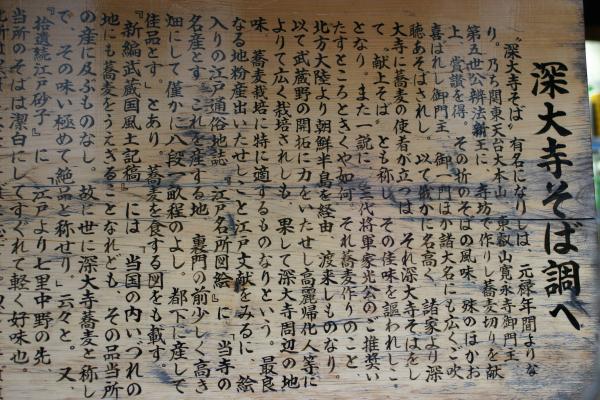 深大寺そば調へ
〝深大寺そば〟有名になりしは、元禄年間よりな
り。乃ち関東天台大本山、東叡山寛永寺御門主
第五世公辨法親王に、寺坊で作りし蕎麦切りを献
上、賞讃を得。その折のそばの風味、殊のほかお
喜ばれし御門主、御一門ほか諸大名にも広くご吹
聴あそばされし。以て厳かに名高く、諸家より深
大寺に蕎麦の使者が立つは、それ深大寺そばをし
て、〝献上そば〟とも称し、その佳味を謳われしこ
ととなり。また一説に、三代将軍家光公のご推奨い
たすところときくや如何。それ蕎麦作りのこと、
北方大陸より朝鮮半島を経由、渡来しものなり。
以て武蔵野の開拓に力をいたせし高麗帰化人等に
よりて広く栽培されしも、果して深大寺周辺の地
味、蕎麦栽培に特に適するものなりという。最良
なる地粉産出いたせしこと江戸文献をみるに、絵
入りの江戸通俗地誌『江戸名所図絵』に「当寺の
名産とす。これを産する地、裏門の前少しく高き
畑にして、僅かに八段一畝程のよし。都下に産して
佳品とす。」とあり、蕎麦を食する図をも載す。
『新編武蔵国風土記稿』には「当国の内、いづれの
地にも蕎麦をうえざることなけれども、その品当所
の産に及ぶものなし。故に世に深大寺蕎麦と称し
で、その味い極めて絶品と称せり」云々と。又
『拾遺続江戸砂子』に「江戸より七里中野の先、
当所のそばは潔白にしてすぐれて軽く好味也。